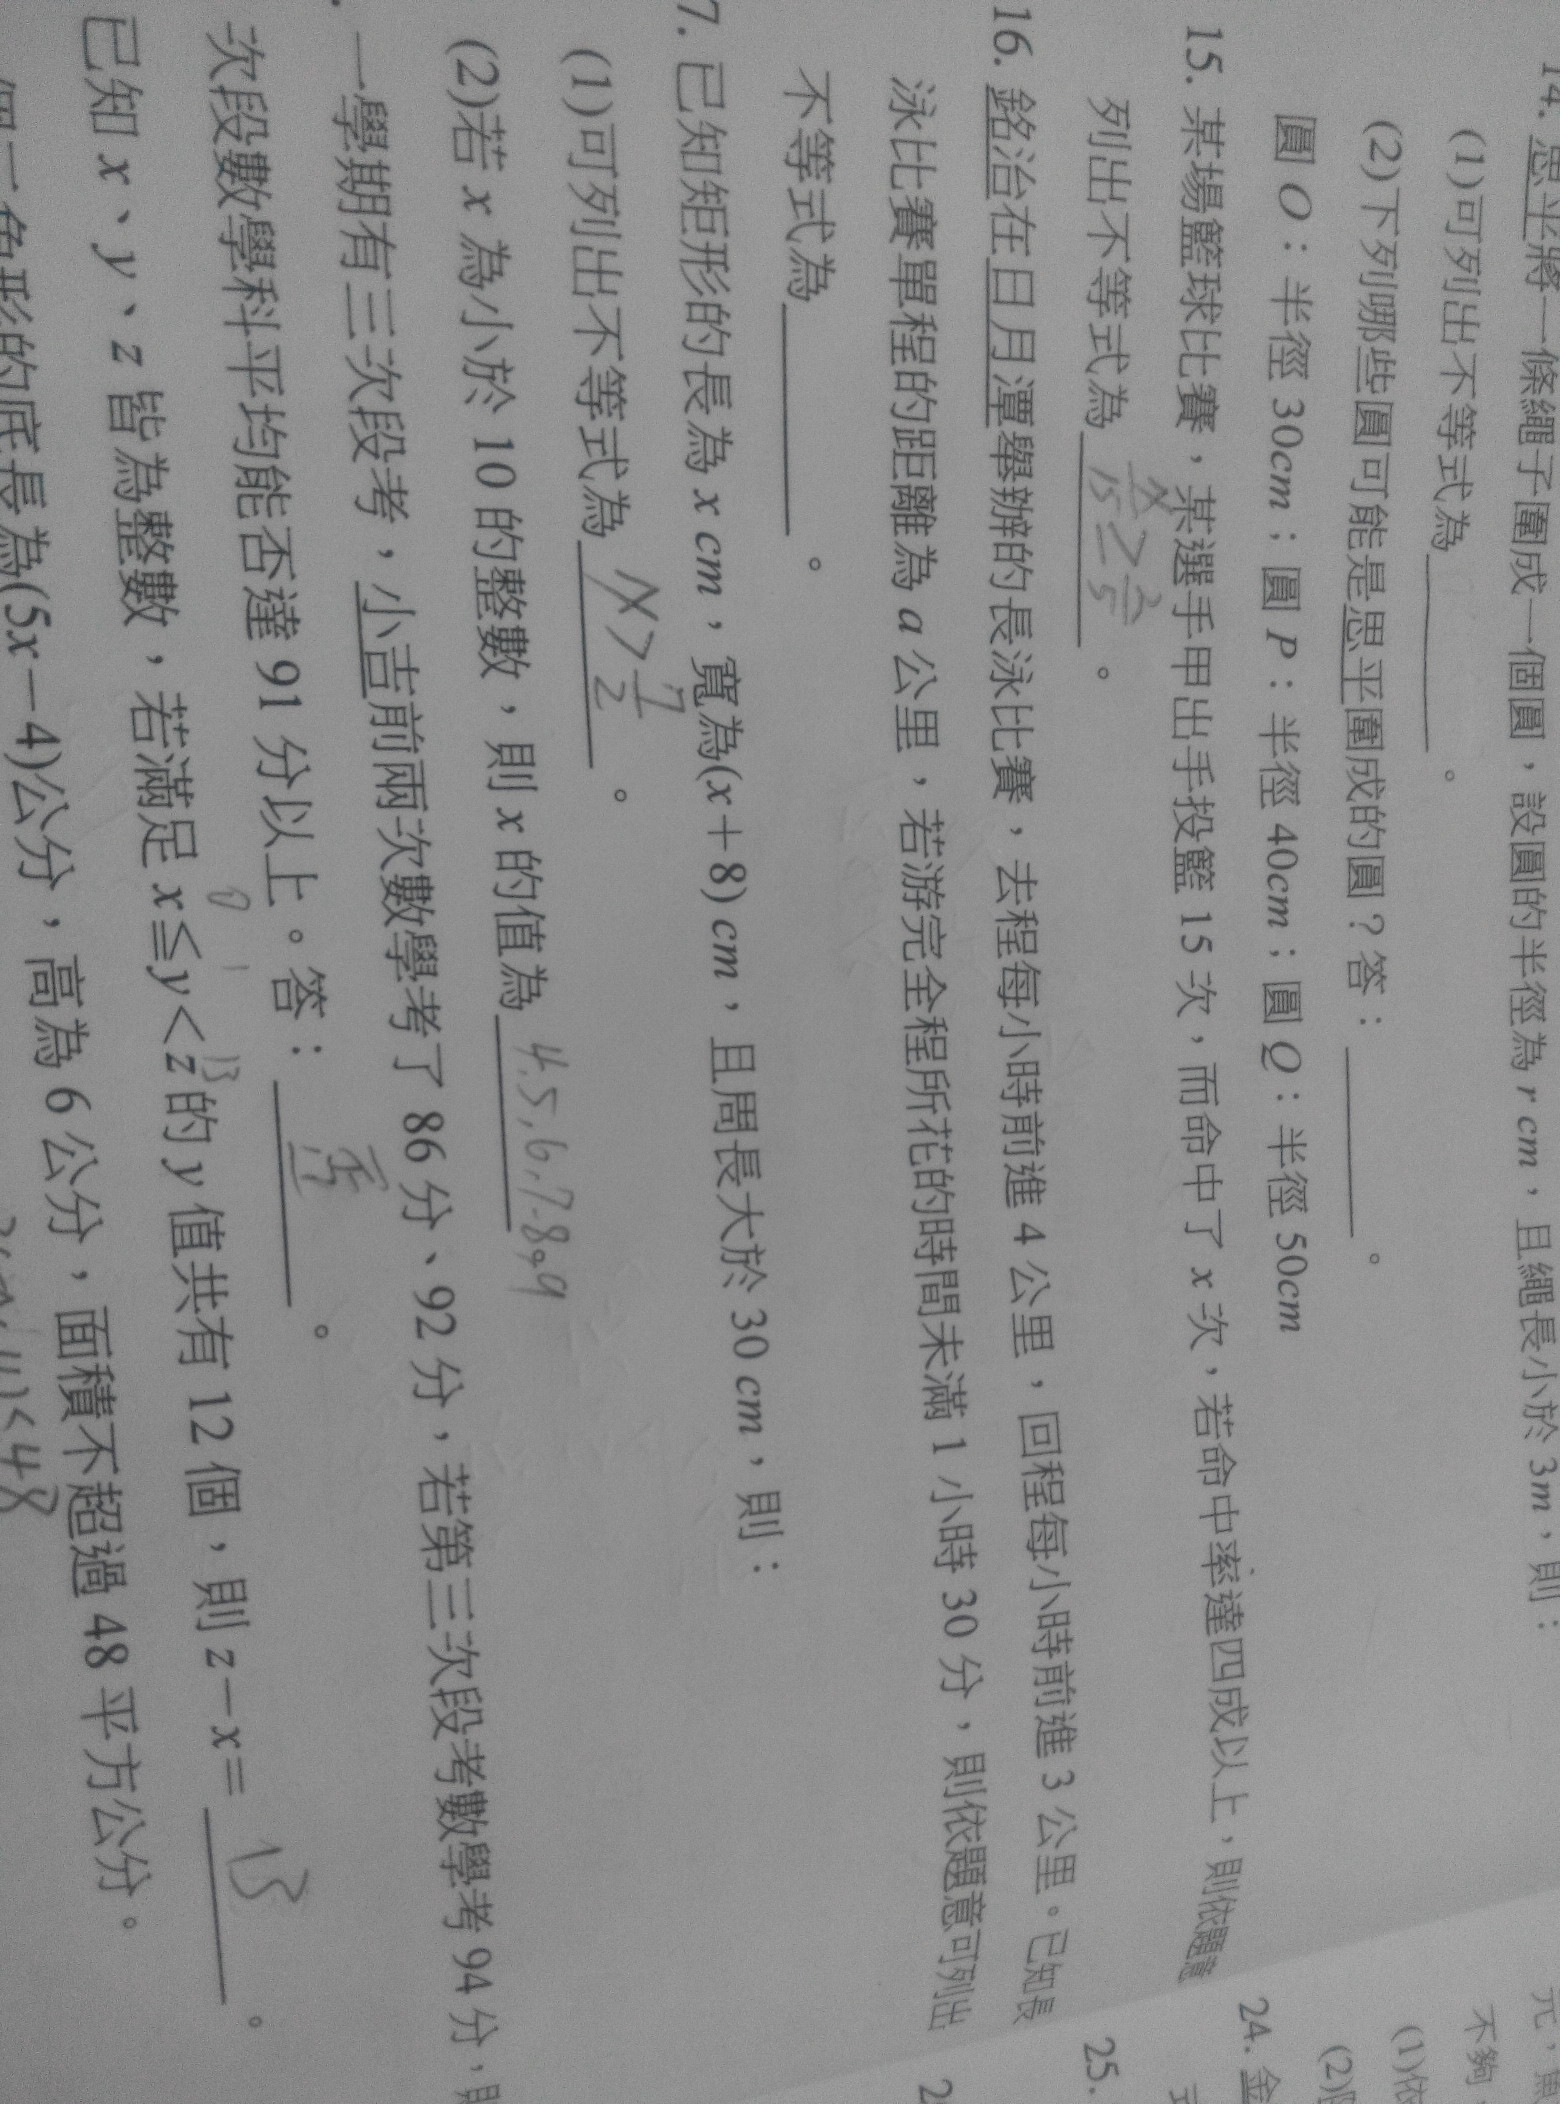 14. 思平將一條繩子圍成一個圓，設圓的半徑為 r cm，且繩長小於 3m，則：
(1)可列出不等式為＿＿＿＿。
(2)下列哪些圓可能是思平圍成的圓？答：＿＿＿＿。
圓 O：半徑 30cm；圓 P：半徑 40cm；圓 Q：半徑 50cm
15. 某場籃球比賽，某選手甲出手投籃 15 次，而命中了 x 次，若命中率達四成以上，則依題意
列出不等式為 x/15 ≥ 2/5 。
16. 銘治在日月潭舉辦的長泳比賽，去程每小時前進 4 公里，回程每小時前進 3 公里。已知長
泳比賽單程的距離為 a 公里，若游完全程所花的時間未滿 1 小時 30 分，則依題意可列出
不等式為＿＿＿＿。
7. 已知矩形的長為 x cm，寬為(x＋8) cm，且周長大於 30 cm，則：
(1)可列出不等式為 x > 7/2 。
(2)若 x 為小於 10 的整數，則 x 的值為 4,5,6,7,8,9
一學期有三次段考，小吉前兩次數學考了 86 分、92 分，若第三次段考數學考 94 分，
次段數學科平均能否達 91 分以上。答：否。
已知 x、y、z 皆為整數，若滿足 x≦y<z 的 y 值共有 12 個，則 z－x＝ 13 。
0 1 13
個三角形的底長為(5x－4)公分，高為 6 公分，面積不超過 48 平方公分。
<48
元，
不夠
(1)依
(2)
24. 金
25.
2